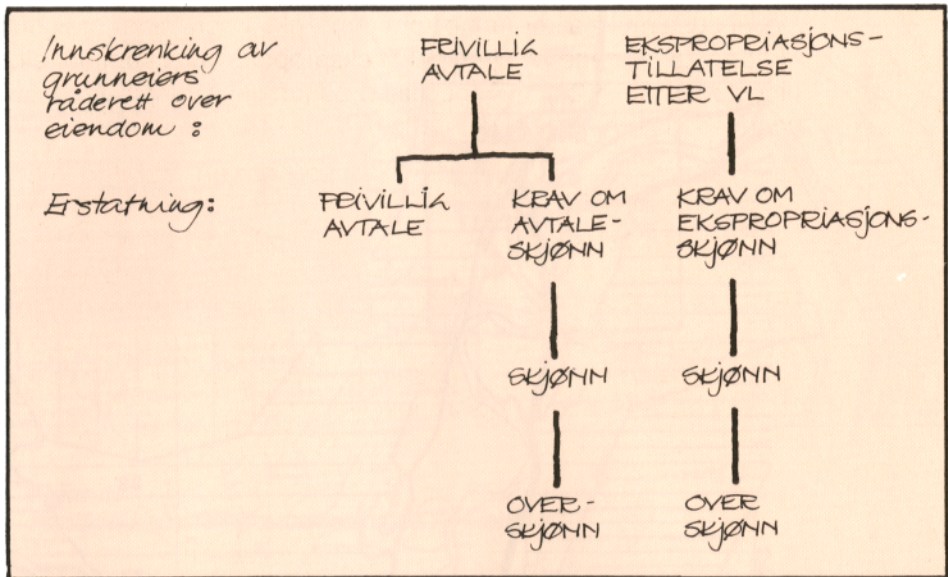 Innskrenking av
grunneiers
råderett over
eiendom :
FRIVILLIG
AVTALE
EKSPROPRIASJONS-
TILLATELSE
ETTER VL
Erstatning:
FRIVILLIG
AVTALE
KRAV OM
AVTALE-
SKJØNN
KRAV OM
EKSPROPRIASJONS-
SKJØNN
SKJØNN
SKJØNN
OVER-
SKJØNN
OVER
SKJØNN